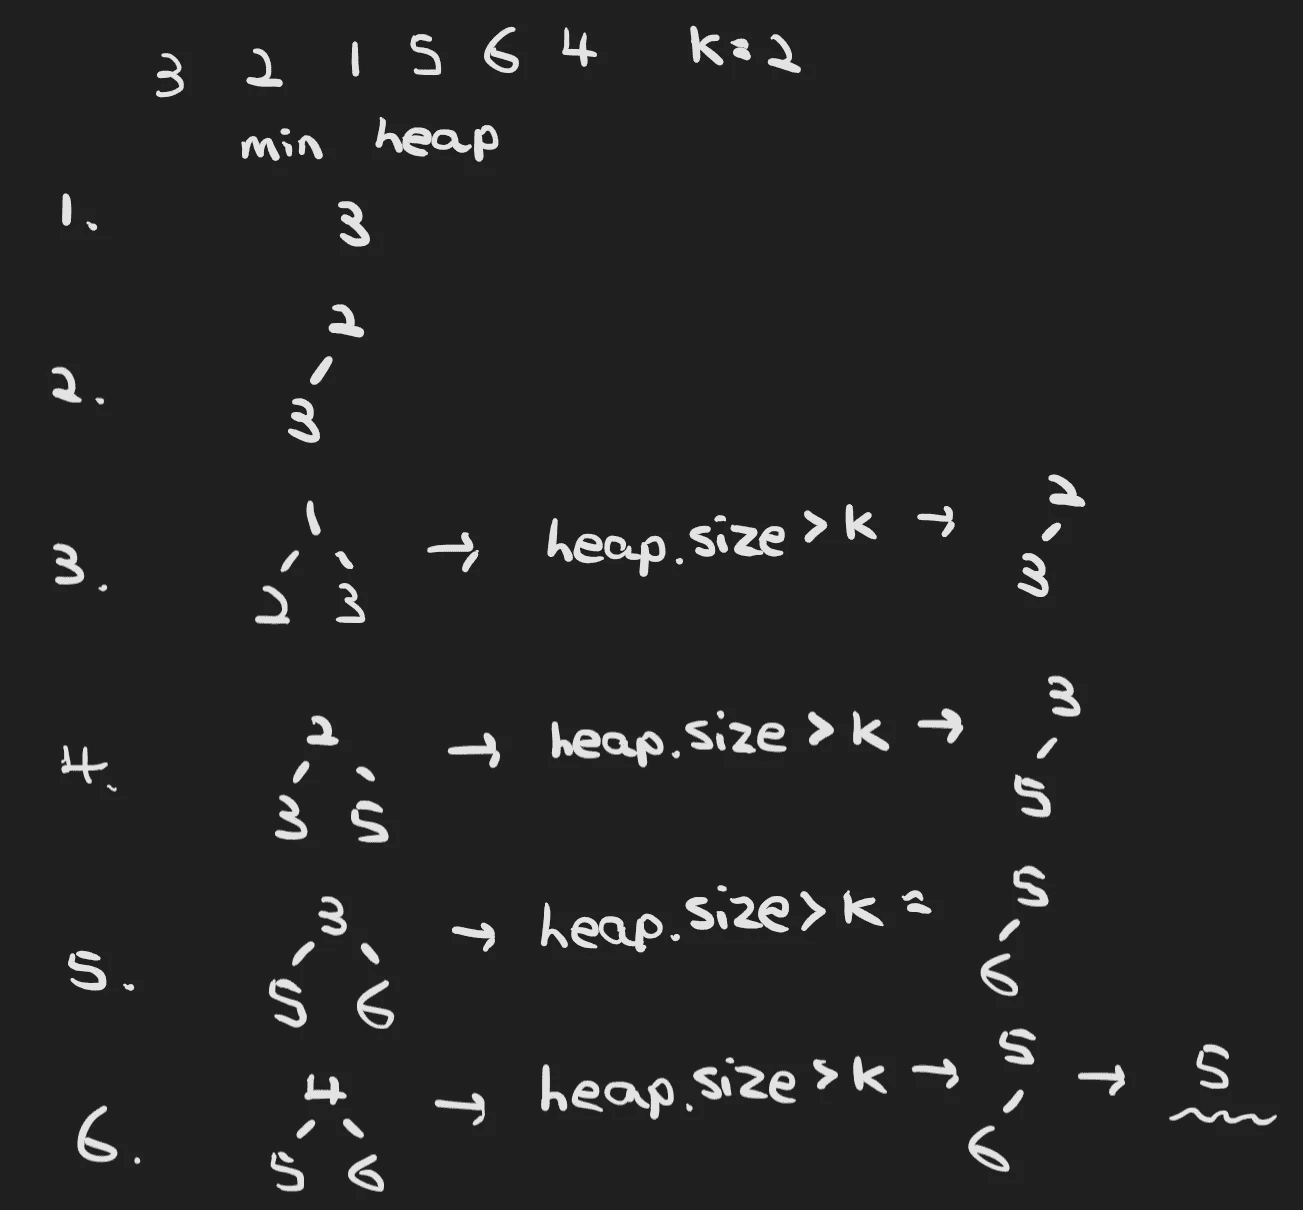 3 2 1 5 6 4 k=2
min heap
1. 3
2
2.
3
1 → heap.size > k → 2
3. 3
2 3
2 → heap.size > k → 3
4.
3 5 5
3 → heap.size > k = 5
5. 6
5 6
4 → heap.size > k → 5 → 5
6. 6
5 6